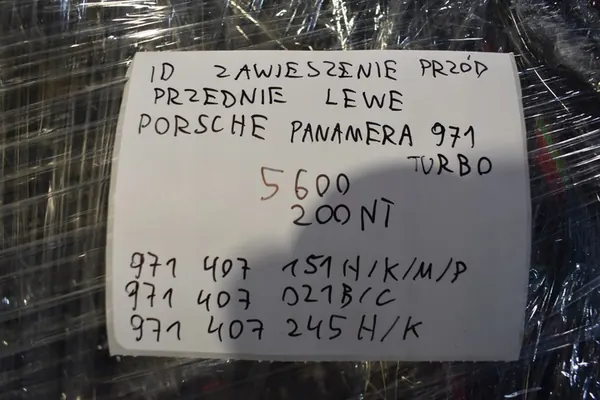 ID ZAWIESZENIE PRZÓD
PRZEDNIE LEWE
PORSCHE PANAMERA 971
TURBO
5600
200NT
971 407 151H/K/M/P
971 407 021B/C
971 407 245H/K